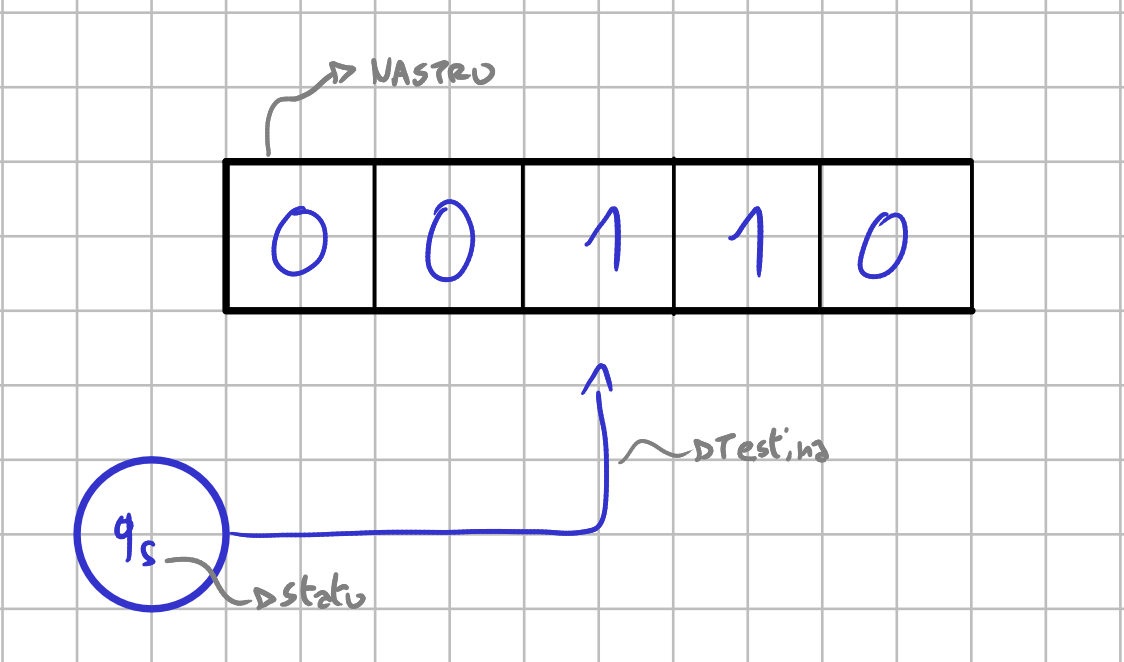 NASTRO
0 0 1 1 0
Testina
qs
Stato